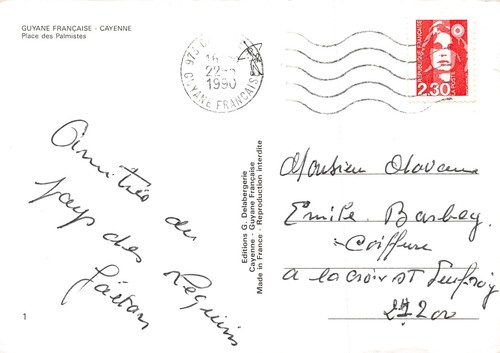 GUYANE FRANÇAISE - CAYENNE
Place des Palmistes
973
22-
1990
GUYANE FRANÇAISE
REPUBLIQUE FRANÇAISE
2,30
LA POSTE
Amitiés du
pays des Requins
Gaëtan
Editions G. Delabergerie
Cayenne - Guyane Française
Made in France - Reproduction interdite
Monsieur
Emile Barbey
Coiffure
a la croix st
1